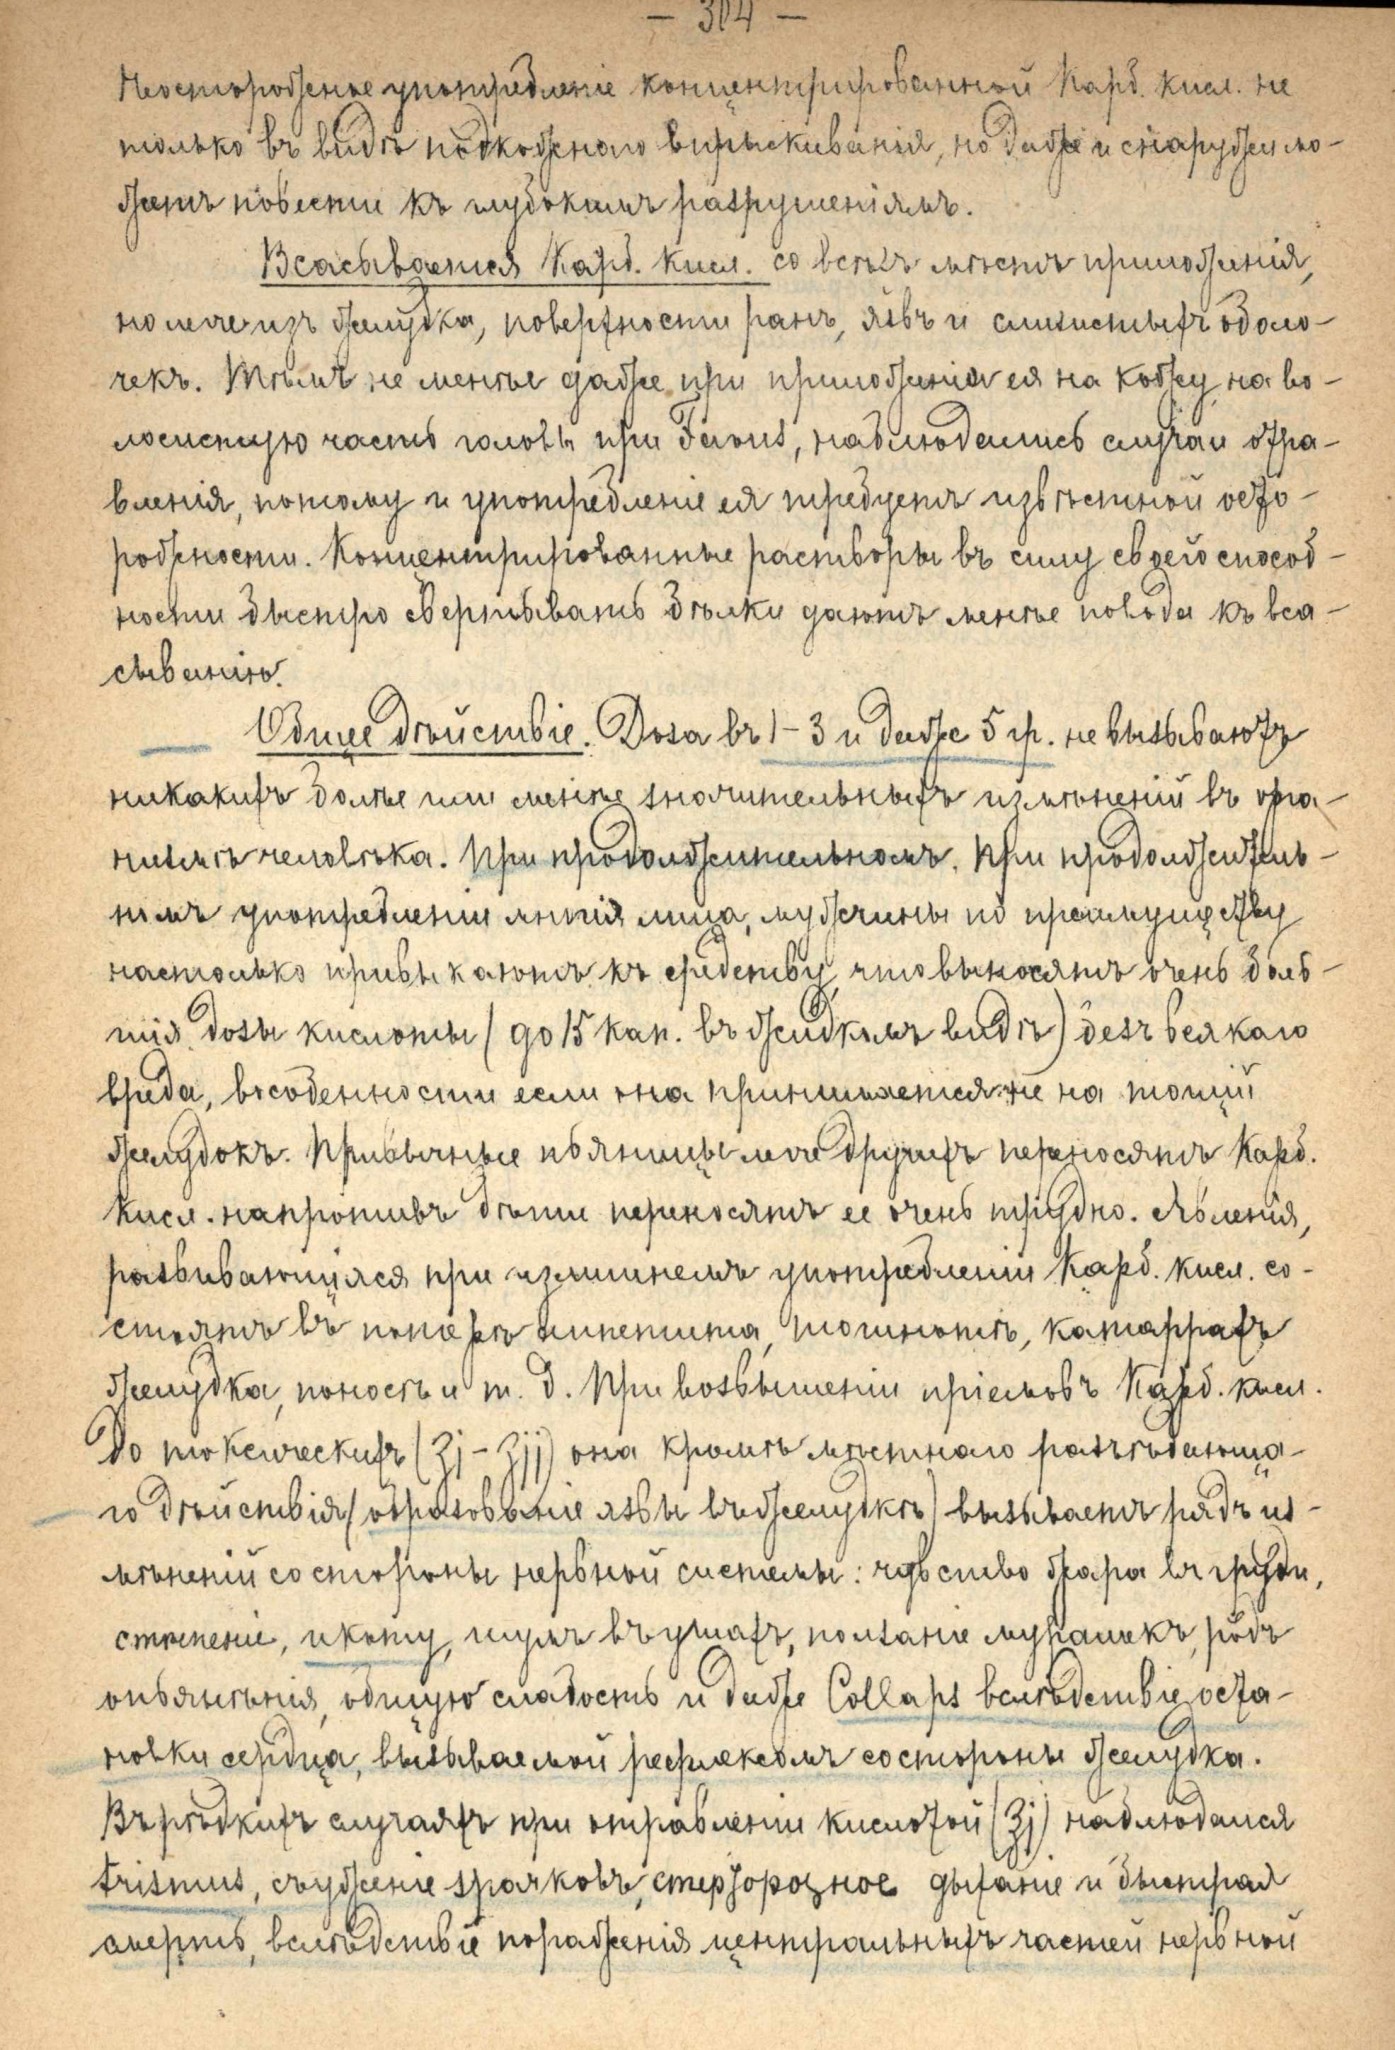 — 304 —
Неосторожное употребленіе концентрированной Карб. кисл. не
только въ видѣ подкожнаго впрыскиванія, но даже и снаружи мо-
жетъ повести къ глубокимъ разрушеніямъ.
Всасывается Карб. кисл. со всѣхъ мѣстъ приложенія,
но легче изъ желудка, поверхности ранъ, язвъ и слизистыхъ оболо-
чекъ. Тѣмъ не менѣе даже при приложеніи ея на кожу, на во-
лосистую часть головы при Favus, наблюдались случаи отра-
вленія, потому и употребленіе ея требуетъ извѣстной осто-
рожности. Концентрированные растворы въ силу своей способ-
ности быстро свертывать бѣлки даютъ менѣе повода къ вса-
сыванію.
Общее дѣйствіе. Доза въ 1–3 и даже 5 гр. не вызываютъ
никакихъ болѣе или менѣе значительныхъ измѣненій въ орга-
низмѣ человѣка. При продолжительномъ. При продолжитель-
номъ употребленіи лица, мужчины по преимуществу
настолько привыкаютъ къ средству, что выносятъ очень боль-
шія дозы кислоты (до 15 кап. въ жидкомъ видѣ) безъ всякаго
вреда, въ особенности если она принимается не на тощій
желудокъ. Привычные пьяницы легче другихъ переносятъ Карб.
кисл. напротивъ дѣти переносятъ ее очень трудно. Явленія,
развивающіяся при излишнемъ употребленіи Карб. кисл. со-
стоятъ въ потерѣ аппетита, тошнотѣ, катаррахъ
желудка, поносѣ и т. д. При возвышеніи пріемовъ Карб. кисл.
до токсическихъ (ʒj – ʒjj) она кромѣ мѣстнаго разъѣдающа-
го дѣйствія (образованіе язвы въ желудкѣ) вызываетъ рядъ из-
мѣненій со стороны нервной системы: чувство жара въ груди,
стѣсненіе, икоту, шумъ въ ушахъ, ползаніе мурашекъ, родъ
опьянѣнія, общую слабость и даже Collaps вслѣдствіе оста-
новки сердца, вызываемой рефлексомъ со стороны желудка.
Въ рѣдкихъ случаяхъ при отравленіи кислотой (ʒj) наблюдался
trismus, съуженіе зрачковъ, стерторозное дыханіе и быстрая
смерть, вслѣдствіе пораженія центральныхъ частей нервной